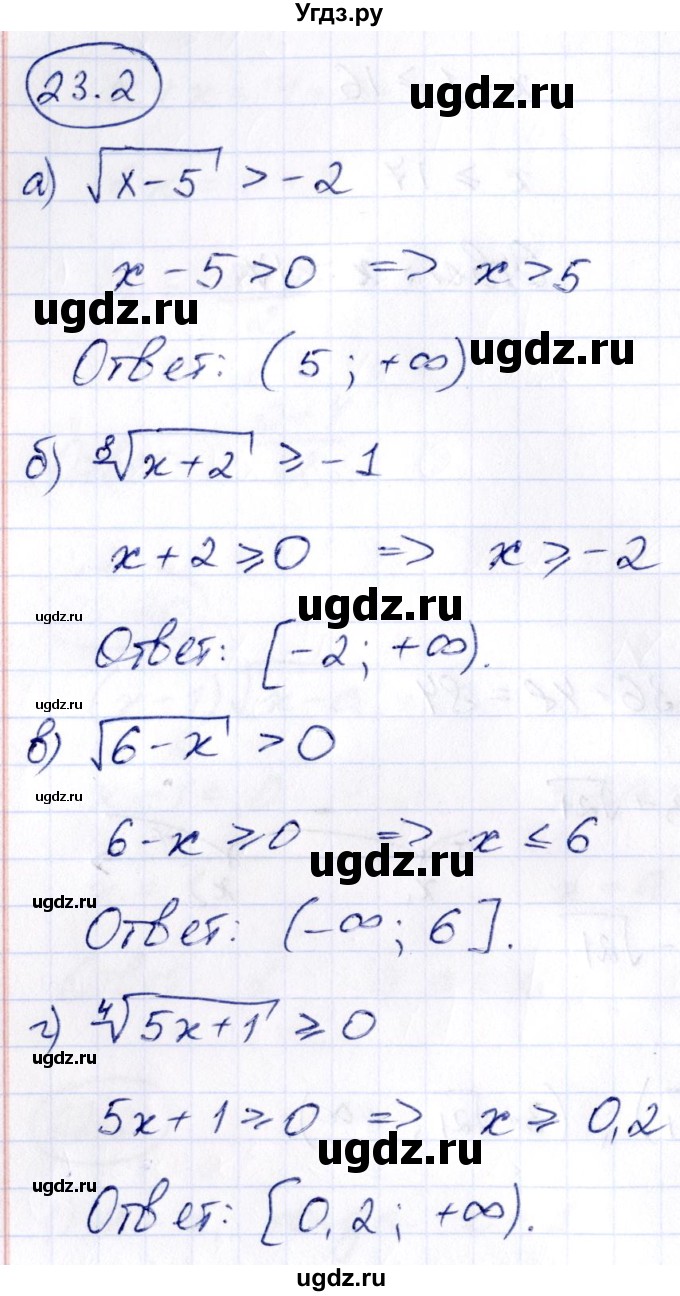 Угдз.ру
23.2
ugdz.ru
а) √(x-5) > -2
x - 5 > 0 => x > 5
ugdz.ru
Ответ: (5; +∞)
ugdz.ru
б) ⁸√(x+2) ⩾ -1
x + 2 ⩾ 0 => x ⩾ -2
ugdz.ru
ugdz.ru
Ответ: [-2; +∞).
ugdz.ru
в) √(6-x) > 0
ugdz.ru
6-x ⩾ 0 => x ≤ 6
ugdz.ru
ugdz.ru
Ответ: (-∞; 6].
г) ⁴√(5x+1) ⩾ 0
ugdz.ru
5x + 1 ⩾ 0 => x ⩾ 0,2
ugdz.ru
ugdz.ru
Ответ: [0,2; +∞).
ugdz.ru